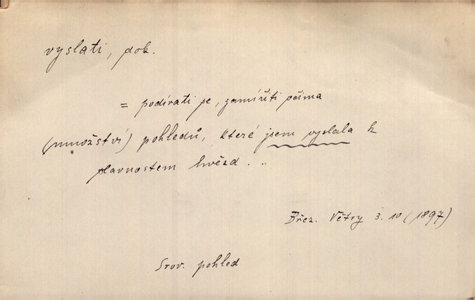 vyslati, dok.
= podívati se, zamířiti očima
(množství) pohledů, které jsem vyslala k
slavnostem hvězd . .
Břez. Větry 3. 10 (1897)
Srov. pohled